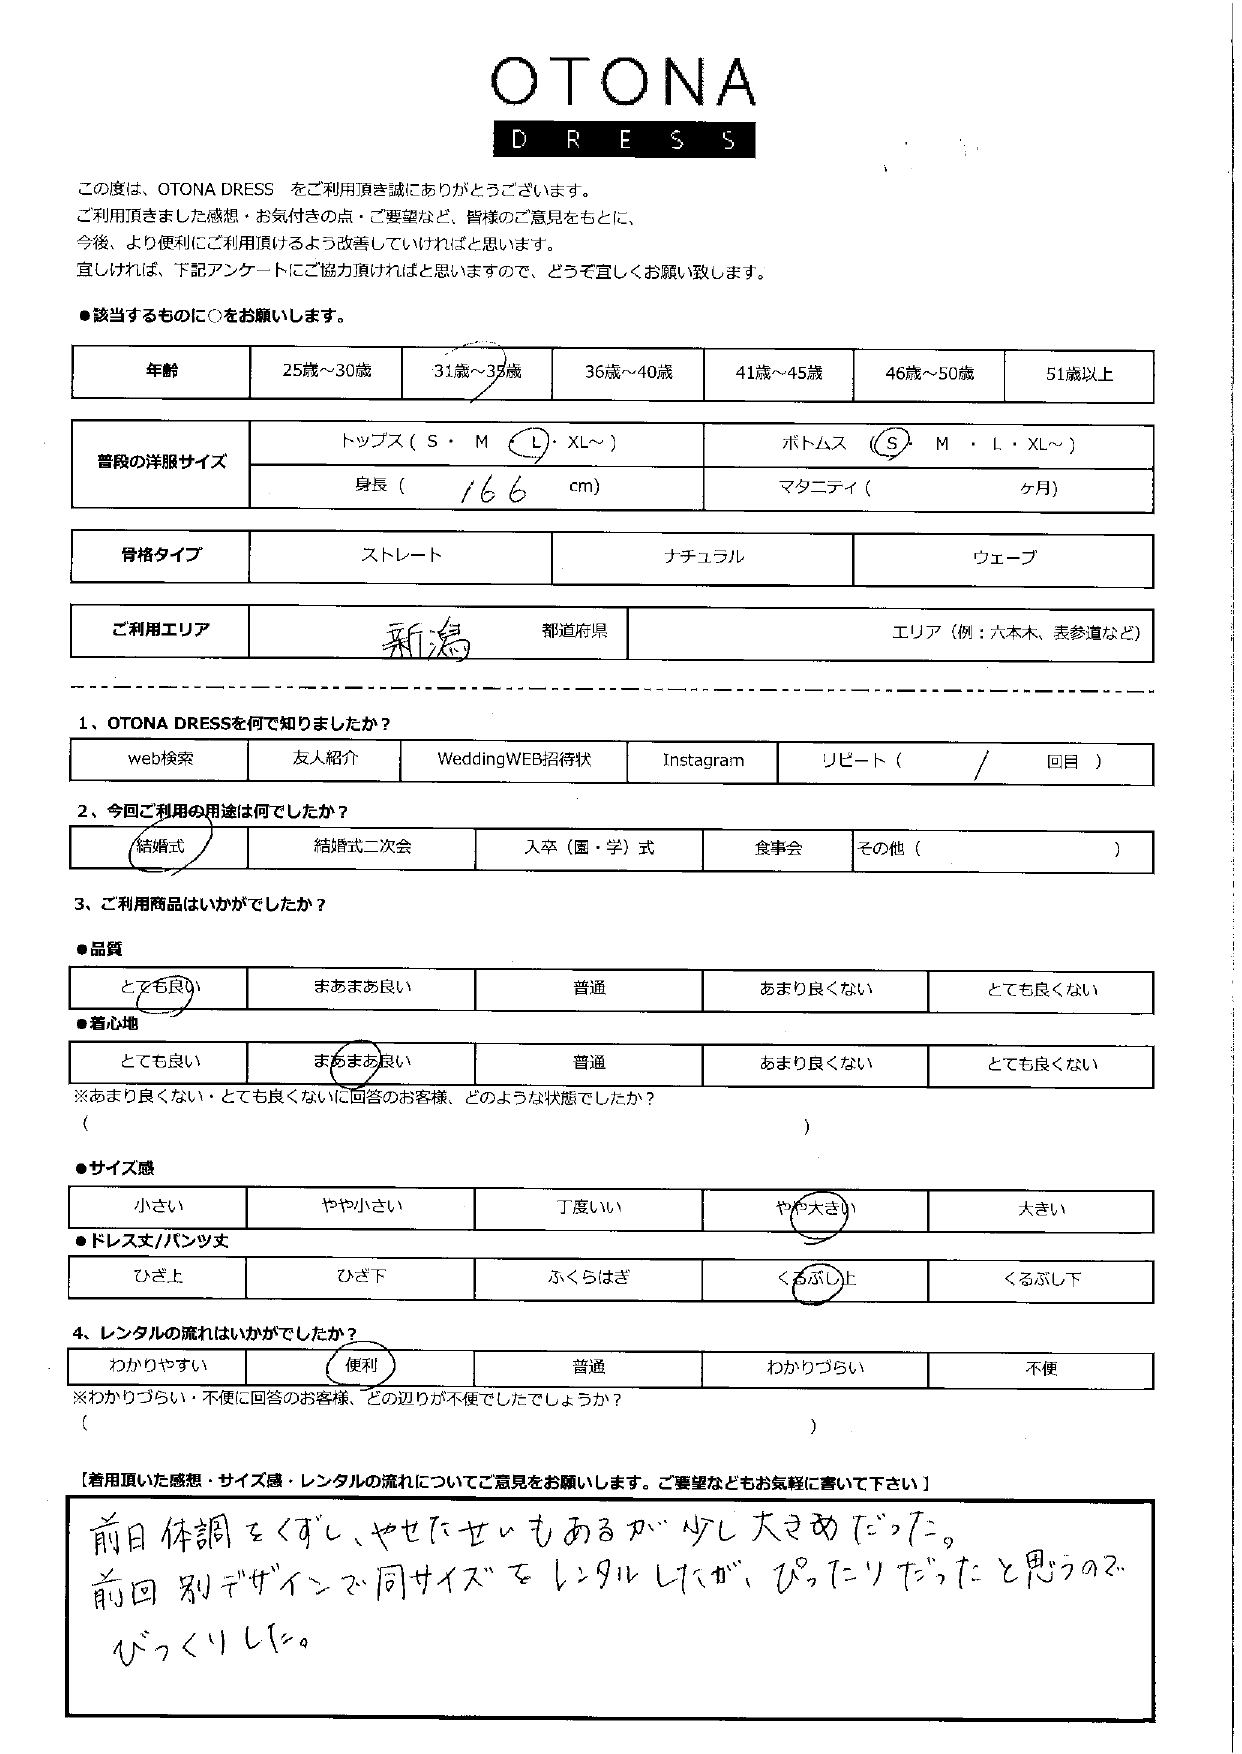 OTONA
DRESS
この度は、OTONA DRESS をご利用頂き誠にありがとうございます。
ご利用頂きました感想・お気付きの点・ご要望など、皆様のご意見をもとに、
今後、より便利にご利用頂けるよう改善していければと思います。
宜しければ、下記アンケートにご協力頂ければと思いますので、どうぞ宜しくお願い致します。
●該当するものに○をお願いします。
年齢 25歳～30歳 31歳～35歳 36歳～40歳 41歳～45歳 46歳～50歳 51歳以上
普段の洋服サイズ トップス ( S ・ M ・ L ・ XL～ ) ボトムス ( S ・ M ・ L ・ XL～ )
身長 ( 166 cm) マタニティ ( ケ月)
骨格タイプ ストレート ナチュラル ウェーブ
ご利用エリア 新潟 都道府県 エリア（例：六本木、表参道など）
1、OTONA DRESSを何で知りましたか？
web検索 友人紹介 WeddingWEB招待状 Instagram リピート（ / 回目 ）
2、今回ご利用の用途は何でしたか？
結婚式 結婚式二次会 入卒（園・学）式 食事会 その他（ ）
3、ご利用商品はいかがでしたか？
●品質
とても良い まあまあ良い 普通 あまり良くない とても良くない
●着心地
とても良い まあまあ良い 普通 あまり良くない とても良くない
※あまり良くない・とても良くないに回答のお客様、どのような状態でしたか？
（ ）
●サイズ感
小さい やや小さい 丁度いい やや大きい 大きい
●ドレス丈/パンツ丈
ひざ上 ひざ下 ふくらはぎ くるぶし上 くるぶし下
4、レンタルの流れはいかがでしたか？
わかりやすい 便利 普通 わかりづらい 不便
※わかりづらい・不便に回答のお客様、どの辺りが不便でしたでしょうか？
（ ）
【着用頂いた感想・サイズ感・レンタルの流れについてご意見をお願いします。ご要望などもお気軽に書いて下さい】
前日体調をくずし、やせたせいもあるが少し大きめだった。
前回別デザインで同サイズをレンタルしたが、ぴったりだったと思うので
びっくりした。